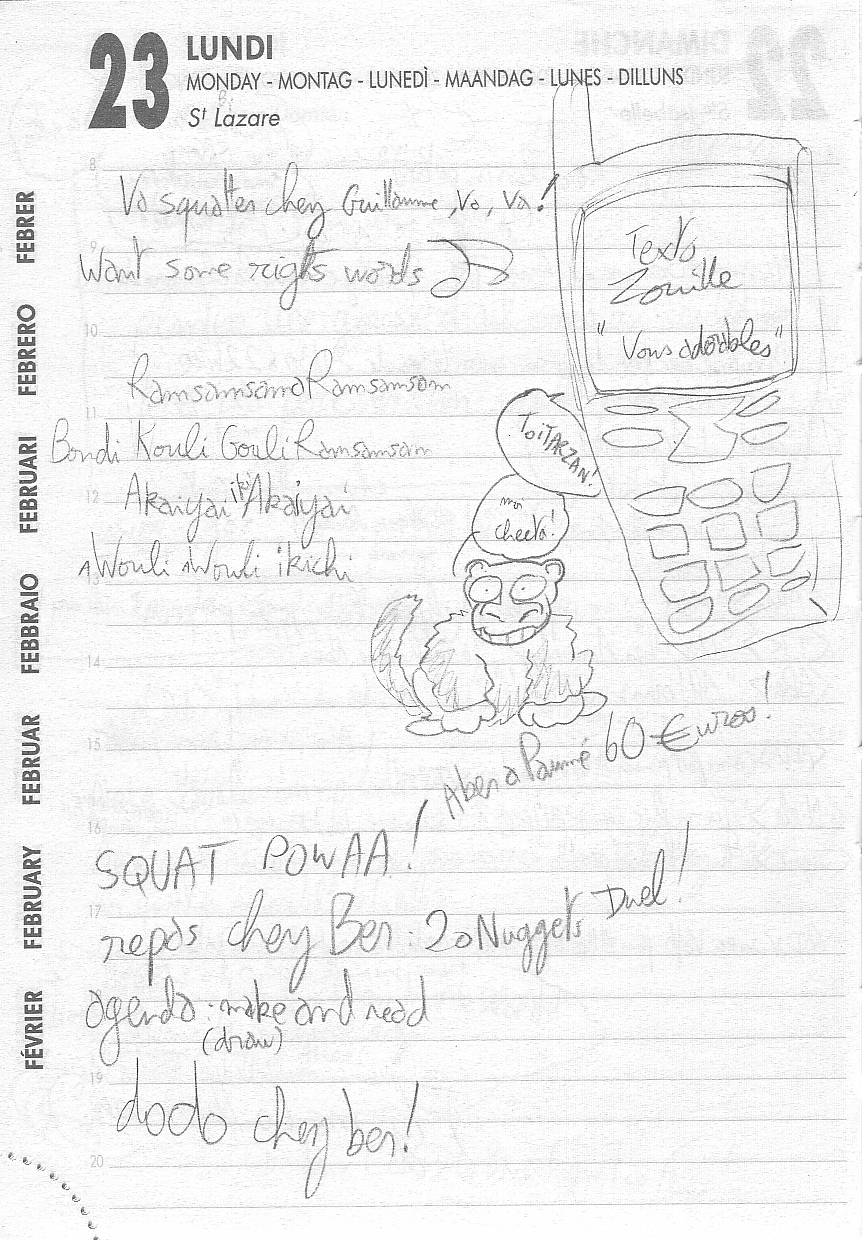 23 LUNDI
MONDAY - MONTAG - LUNEDÌ - MAANDAG - LUNES - DILLUNS
St Lazare
FÉVRIER FEBRUARY FEBRUAR FEBBRAIO FEBRUARI FEBRERO FEBRER
8
Va squatter chez Guillaume, va, va!
9
Want some rights words
10
Texto
Zouille
"Vous adorables"
RamsamsamaRamsamsam
11
Bondi Kouli Gouli Ramsamsam
Toi TARZAN!
12
Akaiyai Akaiyai
moi
cheeta!
Wouli Wouli ikichi
13
14
15
Aben a Paumé 60 €uros!
16
SQUAT POWAA!
17
repas chez Ben: 20 Nuggets Duel!
18
agenda: make and read
(draw)
19
dodo chez ben!
20